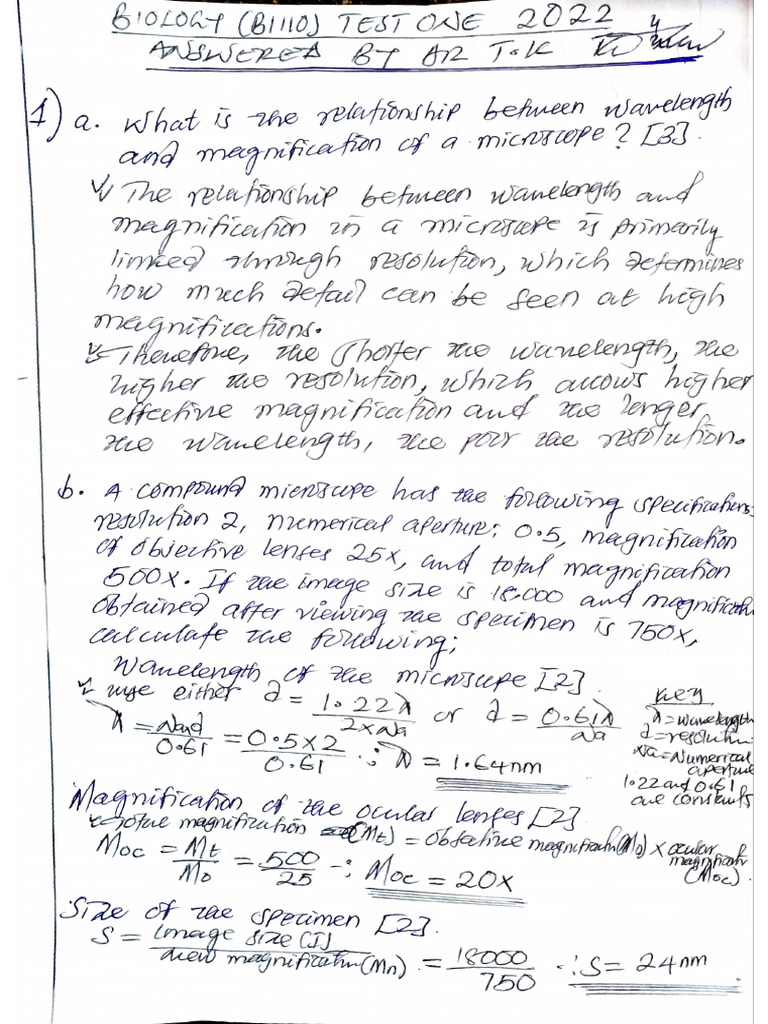 BIOLOGY (BI110) TEST ONE 2022
ANSWERED BY AR T.K
1) a. What is the relationship between wavelength
and magnification of a microscope? [3].
The relationship between wavelength and
magnification in a microscope is primarily
linked through resolution, which determines
how much detail can be seen at high
magnifications.
Therefore, the shorter the wavelength, the
higher the resolution, which allows higher
effective magnification and the longer
the wavelength, the poor the resolution.
b. A compound microscope has the following specifications:
resolution 2, numerical aperture; 0.5, magnification
of objective lenses 25x, and total magnification
500x. If the image size is 18.000 and magnification
obtained after viewing the specimen is 750x,
calculate the following;
Wavelength of the microscope [2].
use either d = 1.22λ / 2xNa or d = 0.61λ / Na
λ = Naxd / 0.61 = 0.5x2 / 0.61 ∴ λ = 1.64nm
Key
λ = wavelength
d = resolution
Na = Numerical
aperture
1.22 and 0.61
are constants
Magnification of the ocular lenses [2].
Total magnification (Mt) = objective magnification (Mo) x ocular
magnification
(Moc)
Moc = Mt / Mo = 500 / 25 ∴ Moc = 20x
Size of the specimen [2].
S = image size (I) / new magnification (Mn) = 18000 / 750 ∴ S = 24nm